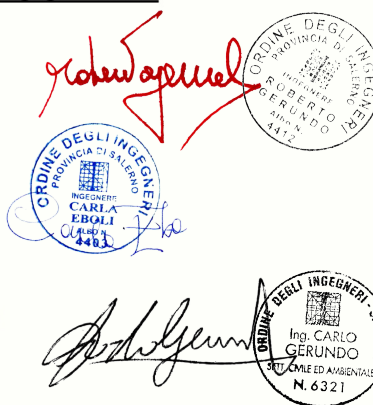 ORDINE DEGLI INGEGNERI
PROVINCIA DI SALERNO
INGEGNERE
ROBERTO
GERUNDO
ALBO N.
4412
ORDINE DEGLI INGEGNERI
PROVINCIA DI SALERNO
INGEGNERE
CARLA
EBOLI
ALBO N.
4403
ORDINE DEGLI INGEGNERI
Ing. CARLO
GERUNDO
SETT. CIVILE ED AMBIENTALE
N. 6321